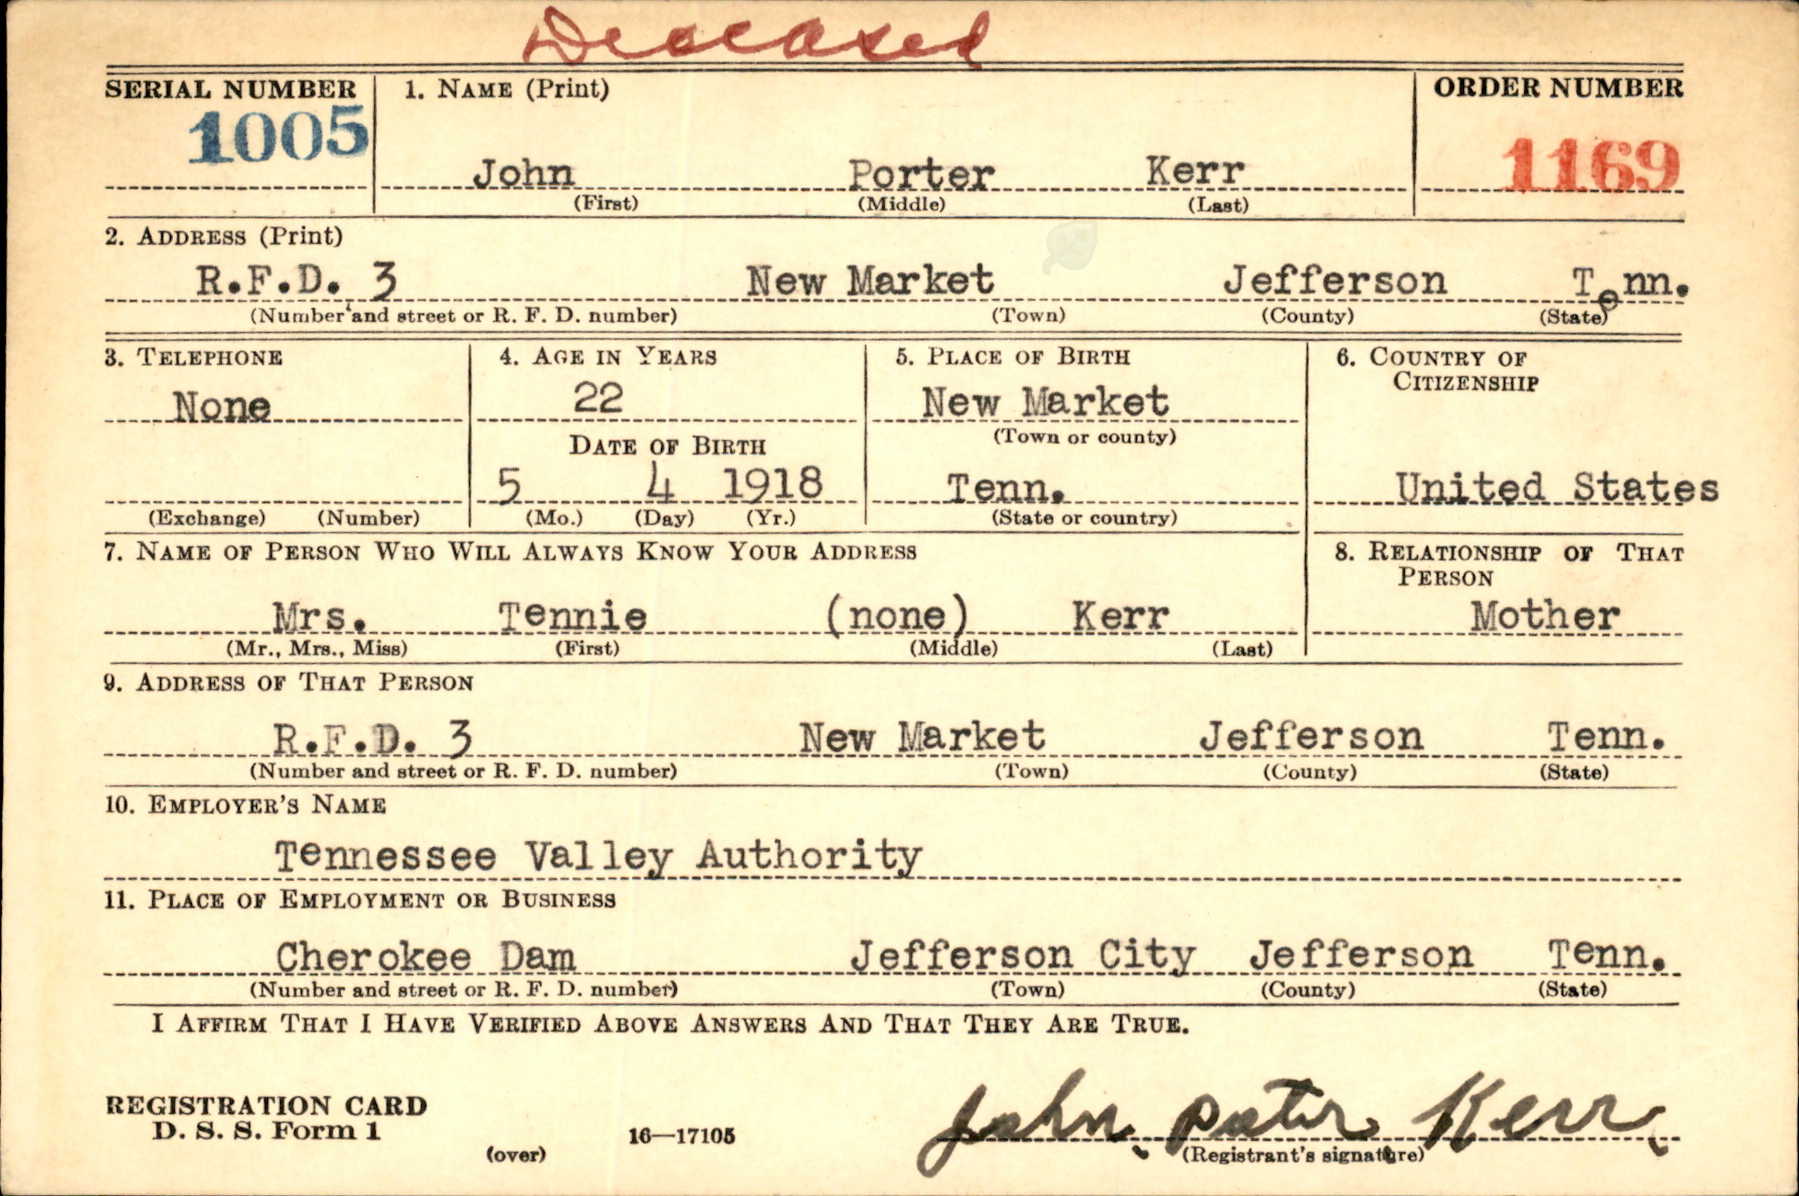 Deceased
SERIAL NUMBER 1. NAME (Print) ORDER NUMBER
1005 John Porter Kerr 1169
(First) (Middle) (Last)
2. ADDRESS (Print)
R.F.D. 3 New Market Jefferson Tenn.
(Number and street or R. F. D. number) (Town) (County) (State)
3. TELEPHONE 4. AGE IN YEARS 5. PLACE OF BIRTH 6. COUNTRY OF
CITIZENSHIP
None 22 New Market
DATE OF BIRTH (Town or county)
5 4 1918 Tenn. United States
(Exchange) (Number) (Mo.) (Day) (Yr.) (State or country)
7. NAME OF PERSON WHO WILL ALWAYS KNOW YOUR ADDRESS 8. RELATIONSHIP OF THAT
PERSON
Mrs. Tennie (none) Kerr Mother
(Mr., Mrs., Miss) (First) (Middle) (Last)
9. ADDRESS OF THAT PERSON
R.F.D. 3 New Market Jefferson Tenn.
(Number and street or R. F. D. number) (Town) (County) (State)
10. EMPLOYER'S NAME
Tennessee Valley Authority
11. PLACE OF EMPLOYMENT OR BUSINESS
Cherokee Dam Jefferson City Jefferson Tenn.
(Number and street or R. F. D. number) (Town) (County) (State)
I AFFIRM THAT I HAVE VERIFIED ABOVE ANSWERS AND THAT THEY ARE TRUE.
REGISTRATION CARD John Porter Kerr
D. S. S. Form 1 (over) 16—17105 (Registrant's signature)